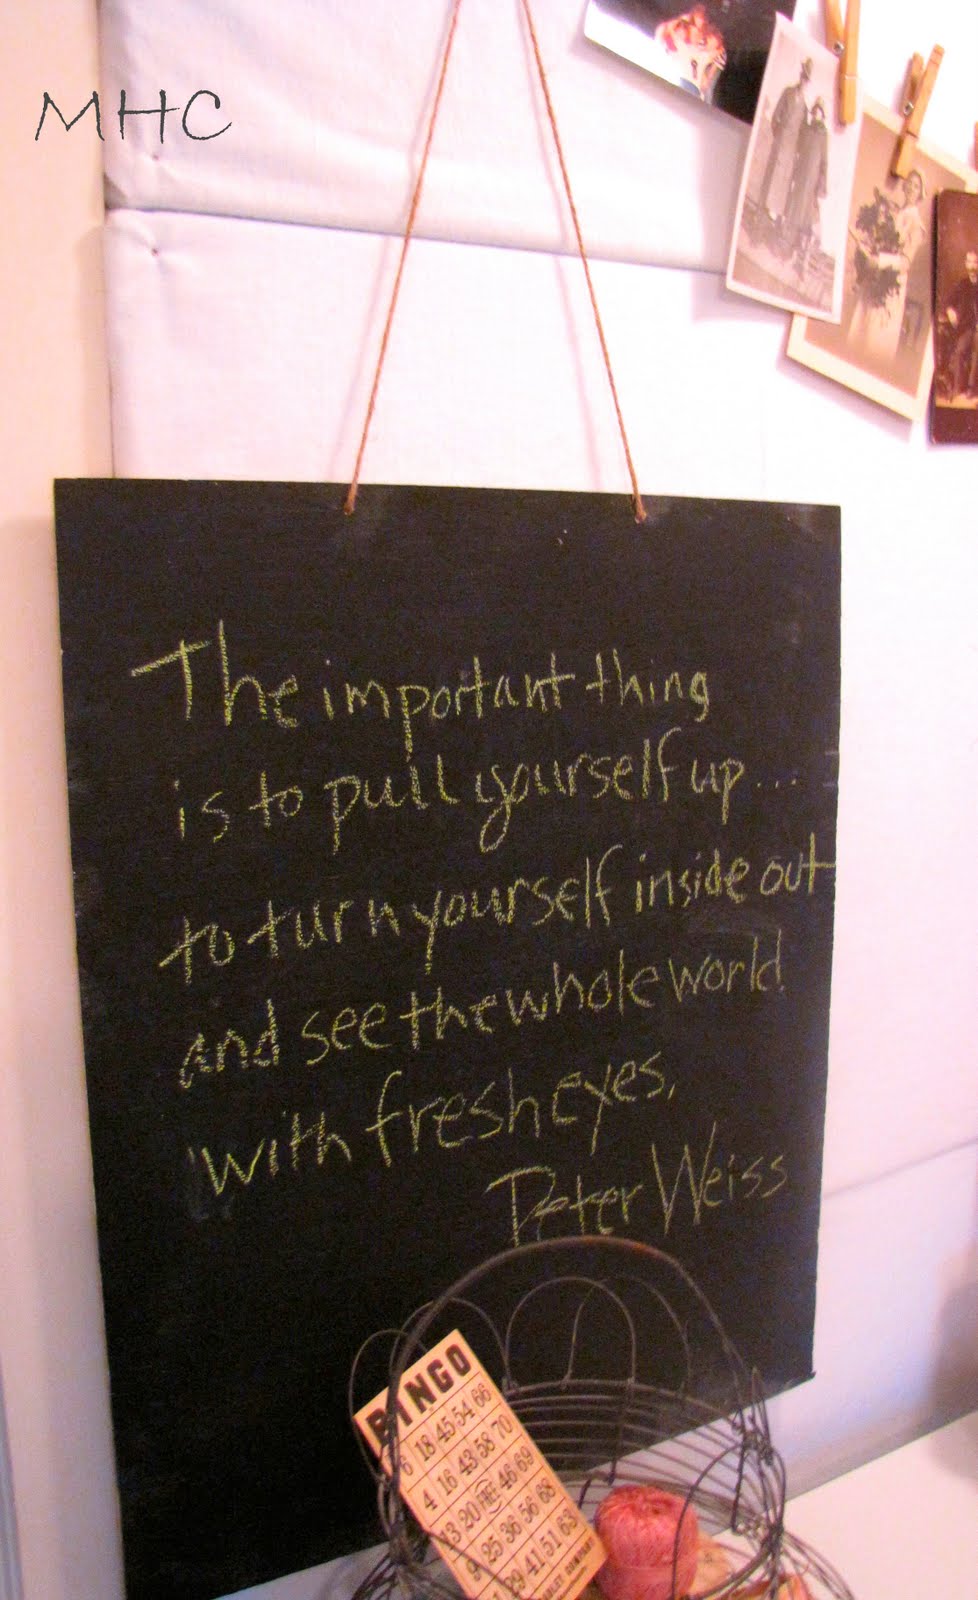 MHC
The important thing
is to pull yourself up...
to turn yourself inside out
and see the whole world
with fresh eyes.
Peter Weiss
BINGO
6 18 45 54 66
4 16 43 58 70
13 20 FREE 46 69
9 25 36 56 68
29 41 51 63
COMPANY